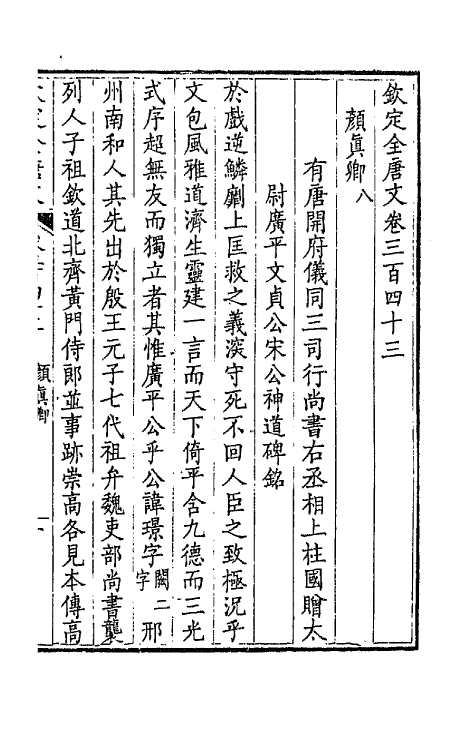 欽定全唐文卷三百四十三
顏眞卿八
有唐開府儀同三司行尚書右丞相上柱國贈太
尉廣平文貞公宋公神道碑銘
於戲逆鱗劘上匡救之義深守死不回人臣之致極況乎
文包風雅道濟生靈建一言而天下倚平含九德而三光
式序超無友而獨立者其惟廣平公乎公諱璟字闕二字邢
州南和人其先出於殷王元子七代祖弁魏吏部尚書襲
列人子祖欽道北齊黃門侍郎並事跡崇高各見本傳高
顏眞卿